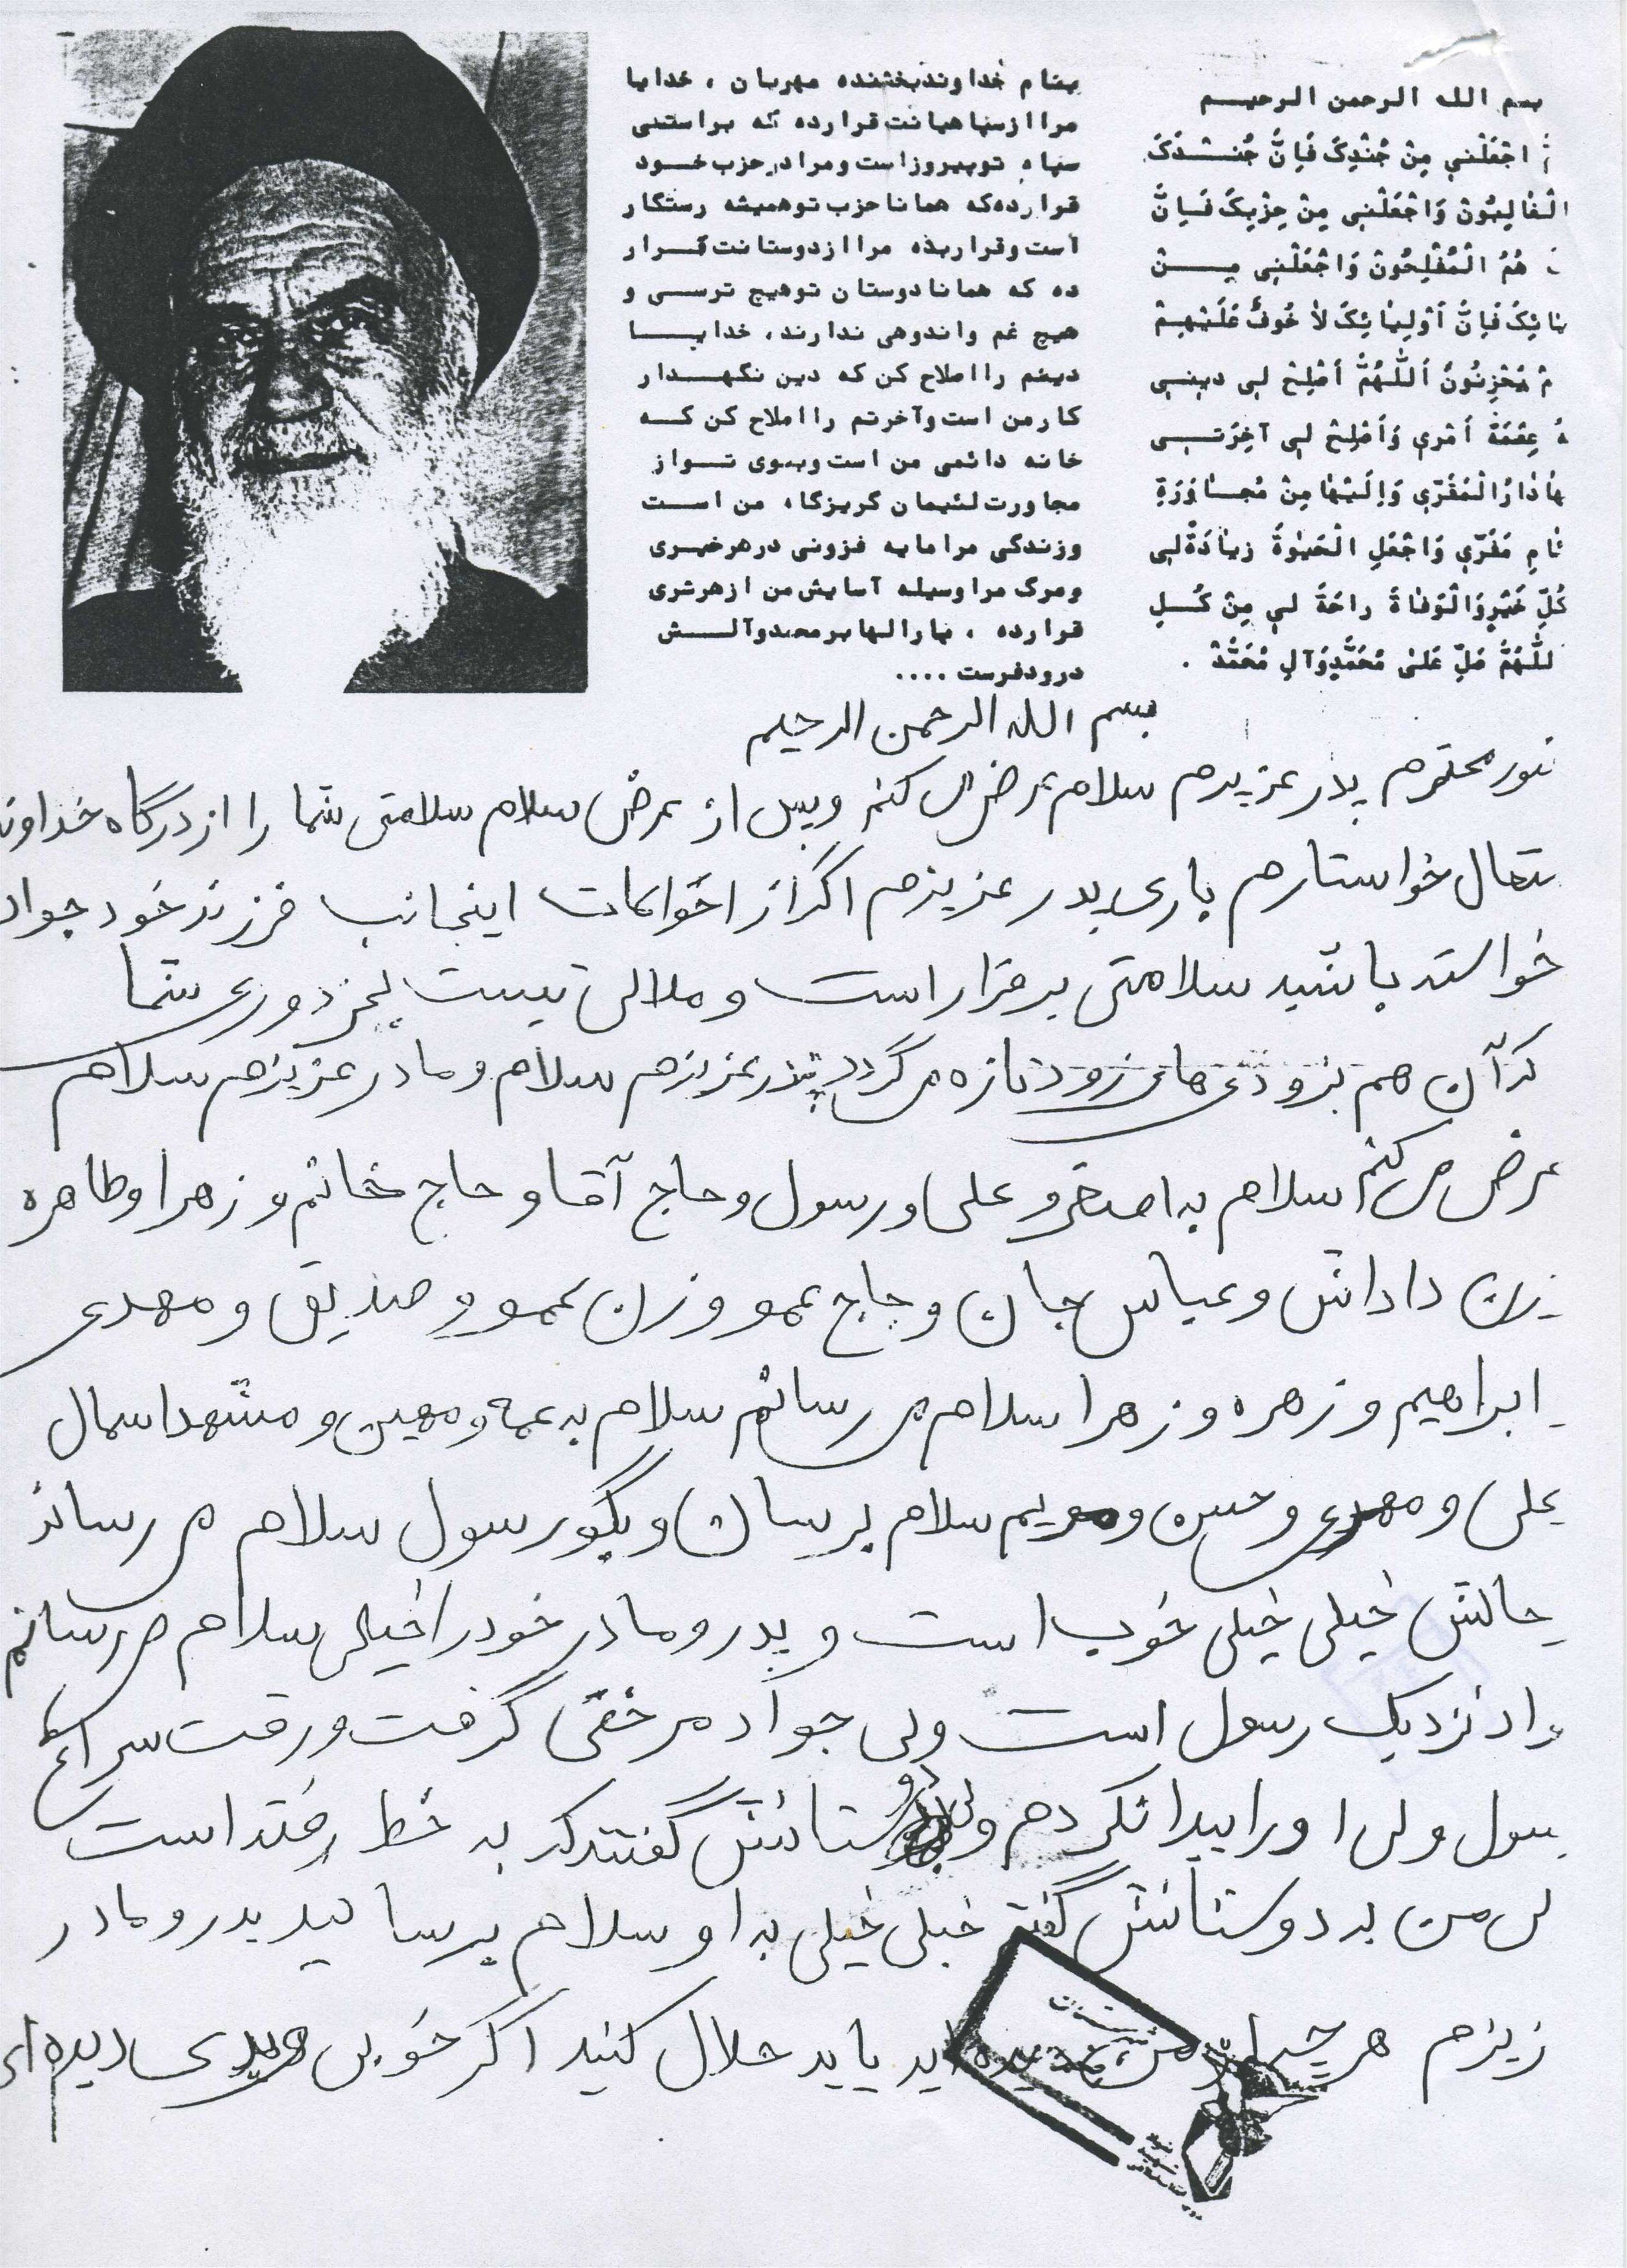 بسم الله الرحمن الرحیم
اجْعَلْنی مِنْ جُنْدِکَ فَاِنَّ جُنْدَکَ
الْغالِبُونَ وَاجْعَلْنی مِنْ حِزْبِکَ فَاِنَّ
هُمُ الْمُفْلِحُونَ وَاجْعَلْنی مِنْ
یائِکَ فَاِنَّ اَوْلِیائِکَ لاٰ خَوْفٌ عَلَیْهِمْ
مْ یَحْزَنُونَ اَللّٰهُمَّ اَصْلِحْ لی دینی
هُ عِصْمَةُ اَمْری وَاَصْلِحْ لی آخِرَتی
هٰا دٰارُ الْمَقَرّی وَاِلَیْهٰا مِنْ مُجٰاوَرَةِ
ئٰامِ مَفَرّی وَاجْعَلِ الْحَیٰوةَ زِیٰادَةً لی
کُلِّ خَیْرٍ وَالْوَفٰاةَ رٰاحَةً لی مِنْ کُلِ
للّٰهُمَّ صَلِّ عَلیٰ مُحَمَّدٍ وَآلِ مُحَمَّدْ .
بنام خداوند بخشنده مهربان ، خدایا
مرا از سپاهیانت قرار ده که براستی
سپاه تو پیروز است و مرا در حزب خود
قرار ده که همانا حزب تو همیشه رستگار
است و قرار بده مرا از دوستانت قرار
ده که همانا دوستان تو هیچ ترسی و
هیچ غم و اندوهی ندارند، خدایا
دینم را اصلاح کن که دین نگهدار
کار من است و آخرتم را اصلاح کن که
خانه دائمی من است و بسوی تو از
مجاورت لئیمان گریزگاه من است
و زندگی مرا مایه فزونی در هر خیری
و مرگ مرا وسیله آسایش من از هر شری
قرار ده ، بارالها بر محمد و آلش
درود فرست ....
بسم الله الرحمن الرحیم
محترم پدر عزیزم سلام عرض می کنم و پس از عرض سلام سلامتی شما را از درگاه خداوند
متعال خواستارم باری پدر عزیزم اگر از احوالات اینجانب فرزند خود جواد
خواسته باشید سلامتی برقرار است و ملالی نیست بجز دوری شما
که آن هم بزودی های زود تازه می گردد پدر عزیزم سلام و مادر عزیزم سلام
عرض می کنم سلام به اصغر و علی و رسول و حاج آقا و حاج خانم و زهرا و طاهره
زن داداش و عباس جان و حاج عمو و زن عمو و صدیق و مهدی
ابراهیم و زهره و زهرا سلام می رسانم سلام به عمه و مهین و مشهد اسمال
علی و مهدی و حسن و مریم سلام برسان و بگو رسول سلام می رساند
حالش خیلی خیلی خوب است و پدر و مادر خود را خیلی سلام می رسانم
واد نزدیک رسول است ولی جواد مرخصی گرفت و رفت سراغ
سول ولی او را پیدا نکردم ولی دوستانش گفتند که به خط رفته است
من به دوستانش گفتم خیلی خیلی به او سلام برسانید پدر و مادر
زیزم هر چه از من دیده اید باید حلال کنید اگر خوبی بدی دیده ای